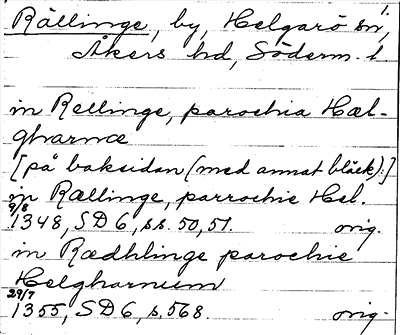 Rällinge, by, Helgarö sn,
Åkers hd, Söderm. l
in Rellinge, parochia Hæl-
gharnæ
[på baksidan (med annat bläck):]
in Rællinge, parrochie Hel.
9/8
1348, SD 6, s.s. 50, 51. orig.
in Rædhlinge parochie
Helgharnum
29/7
1355, SD 6, s. 568. orig.